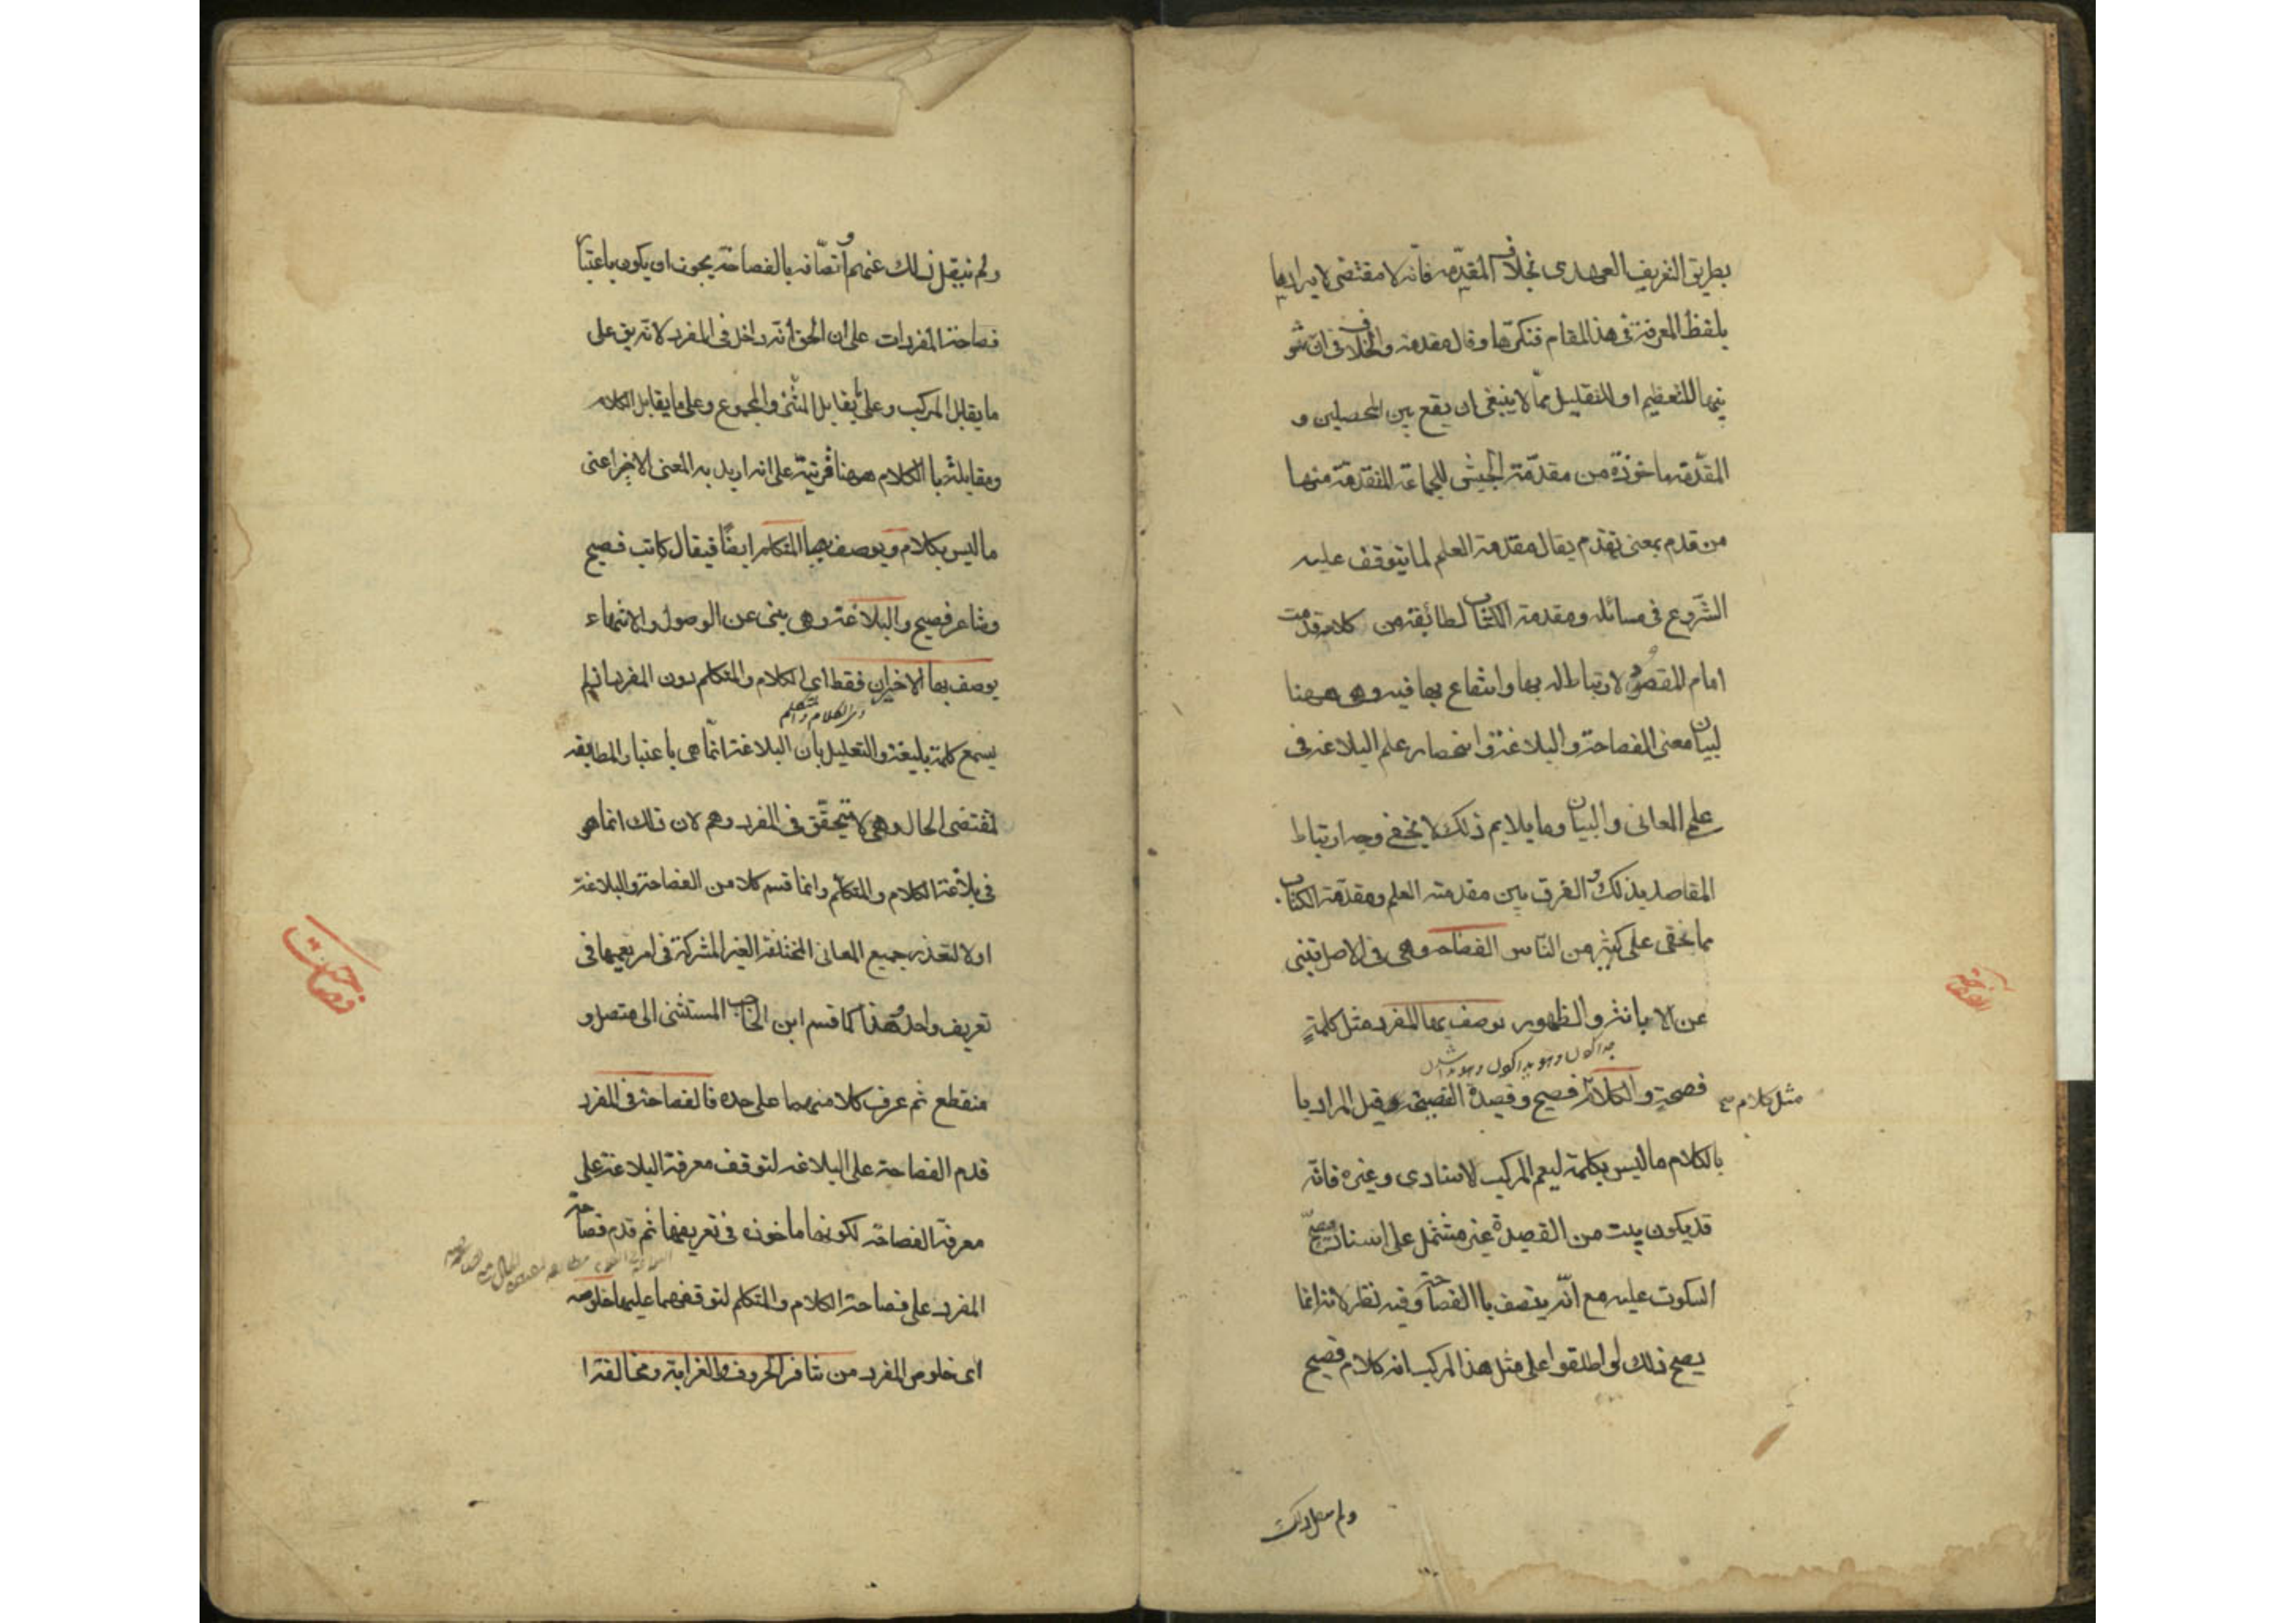 بطريق التعريف العهدى بخلاف المقدّمه فانه لا مقتضى لايرادها
بلفظ المعرفة فى هذا المقام فنكرّها وقال مقدمة والخلاف فى ان تنو
ينها للتعظيم او للتقليل ممّا لا ينبغى ان يقع بين المحصلين و
المقدّمة ماخوذة من مقدّمة الجيش للجماعة المتقدّمة منها
من قدم بمعنى تقدّم يقال مقدمة العلم لما يتوقف عليه
الشّروع فى مسائله ومقدمة الكتاب لطائفة من كلامه قدمت
امام المقصود لارتباط له بها وانتفاع بها فيه وهى ههنا
لبيان معنى الفصاحة والبلاغة وانحصار علم البلاغة فى
علم المعانى والبيان وما يلايم ذلك لا يخفى وجه ارتباط
المقاصد بذلك والفرق بين مقدمة العلم ومقدّمة الكتاب
مما يخفى على كثير من النّاس الفصاحه وهى فى الاصل تنبئ
عن الابانة والظهور يوصف بها المفرد مثل كلمةٍ
فصيحة والكلام فصيح وقصيدة الفصيحة وقيل المراد با
مثل كلام صح
بالكلام ما ليس بكلمة ليعم المركب الاسنادى وغيره فانّه
قد يكون بيت من القصيدة غير مشتمل على اسناد يصحّ
السكوت عليه مع انّه يتصف باالفصاحة وفيه نظر لانه انما
يصح ذلك لو اطلقوا على مثل هذا المركب انه كلام فصيح
ولم ينقل ذلك
ولم ينقل ذلك عنهم واتصّافه بالفصاحة يجوز ان يكون باعتبار
فصاحة المفردات على ان الحق انّه داخل فى المفرد لانّه يق على
ما يقابل المركب وعلى ما يقابل المثنى والمجموع وعلى ما يقابل الكلام
ومقابلته باالكلام ههنا قرينة على انه اريد به المعنى الاخير اعنى
ما ليس بكلام ويوصف بها المتكلم ايضًا فيقال كاتب فصيح
وشاعر فصيح والبلاغة وهى ينبئ عن الوصول والانتهاء
يوصف بها الاخيران فقط اى الكلام والمتكلم دون المفرد اذ لم
يسمع كلمة بليغة والتعليل بان البلاغة انمّا هى باعتبار المطابقه
لمقتضى الحال وهى لا يتحقّق فى المفرد وهم لان ذلك انما هو
فى بلاغة الكلام والمتكلّم وانما قسم كلا من الفصاحة والبلاغة
اولا لتعذر جميع المعانى المختلفة الغير المشتركة فى امر يعمها فى
تعريف واحد وهذا كما قسم ابن الحاجب المستثنى الى متصل و
منقطع ثم عرف كلا منهما على حده فالفصاحة فى المفرد
قدم الفصاحة على البلاغه لتوقف معرفة البلاغة على
معرفة الفصاحة لكونها ماخوذه فى تعريفها ثم قدم فصاحة
المفرد على فصاحة الكلام والمتكلم لتوقفهما عليها خلوصه
اى خلوص المفرد من تنافر الحروف والغرابة ومخالفة ا